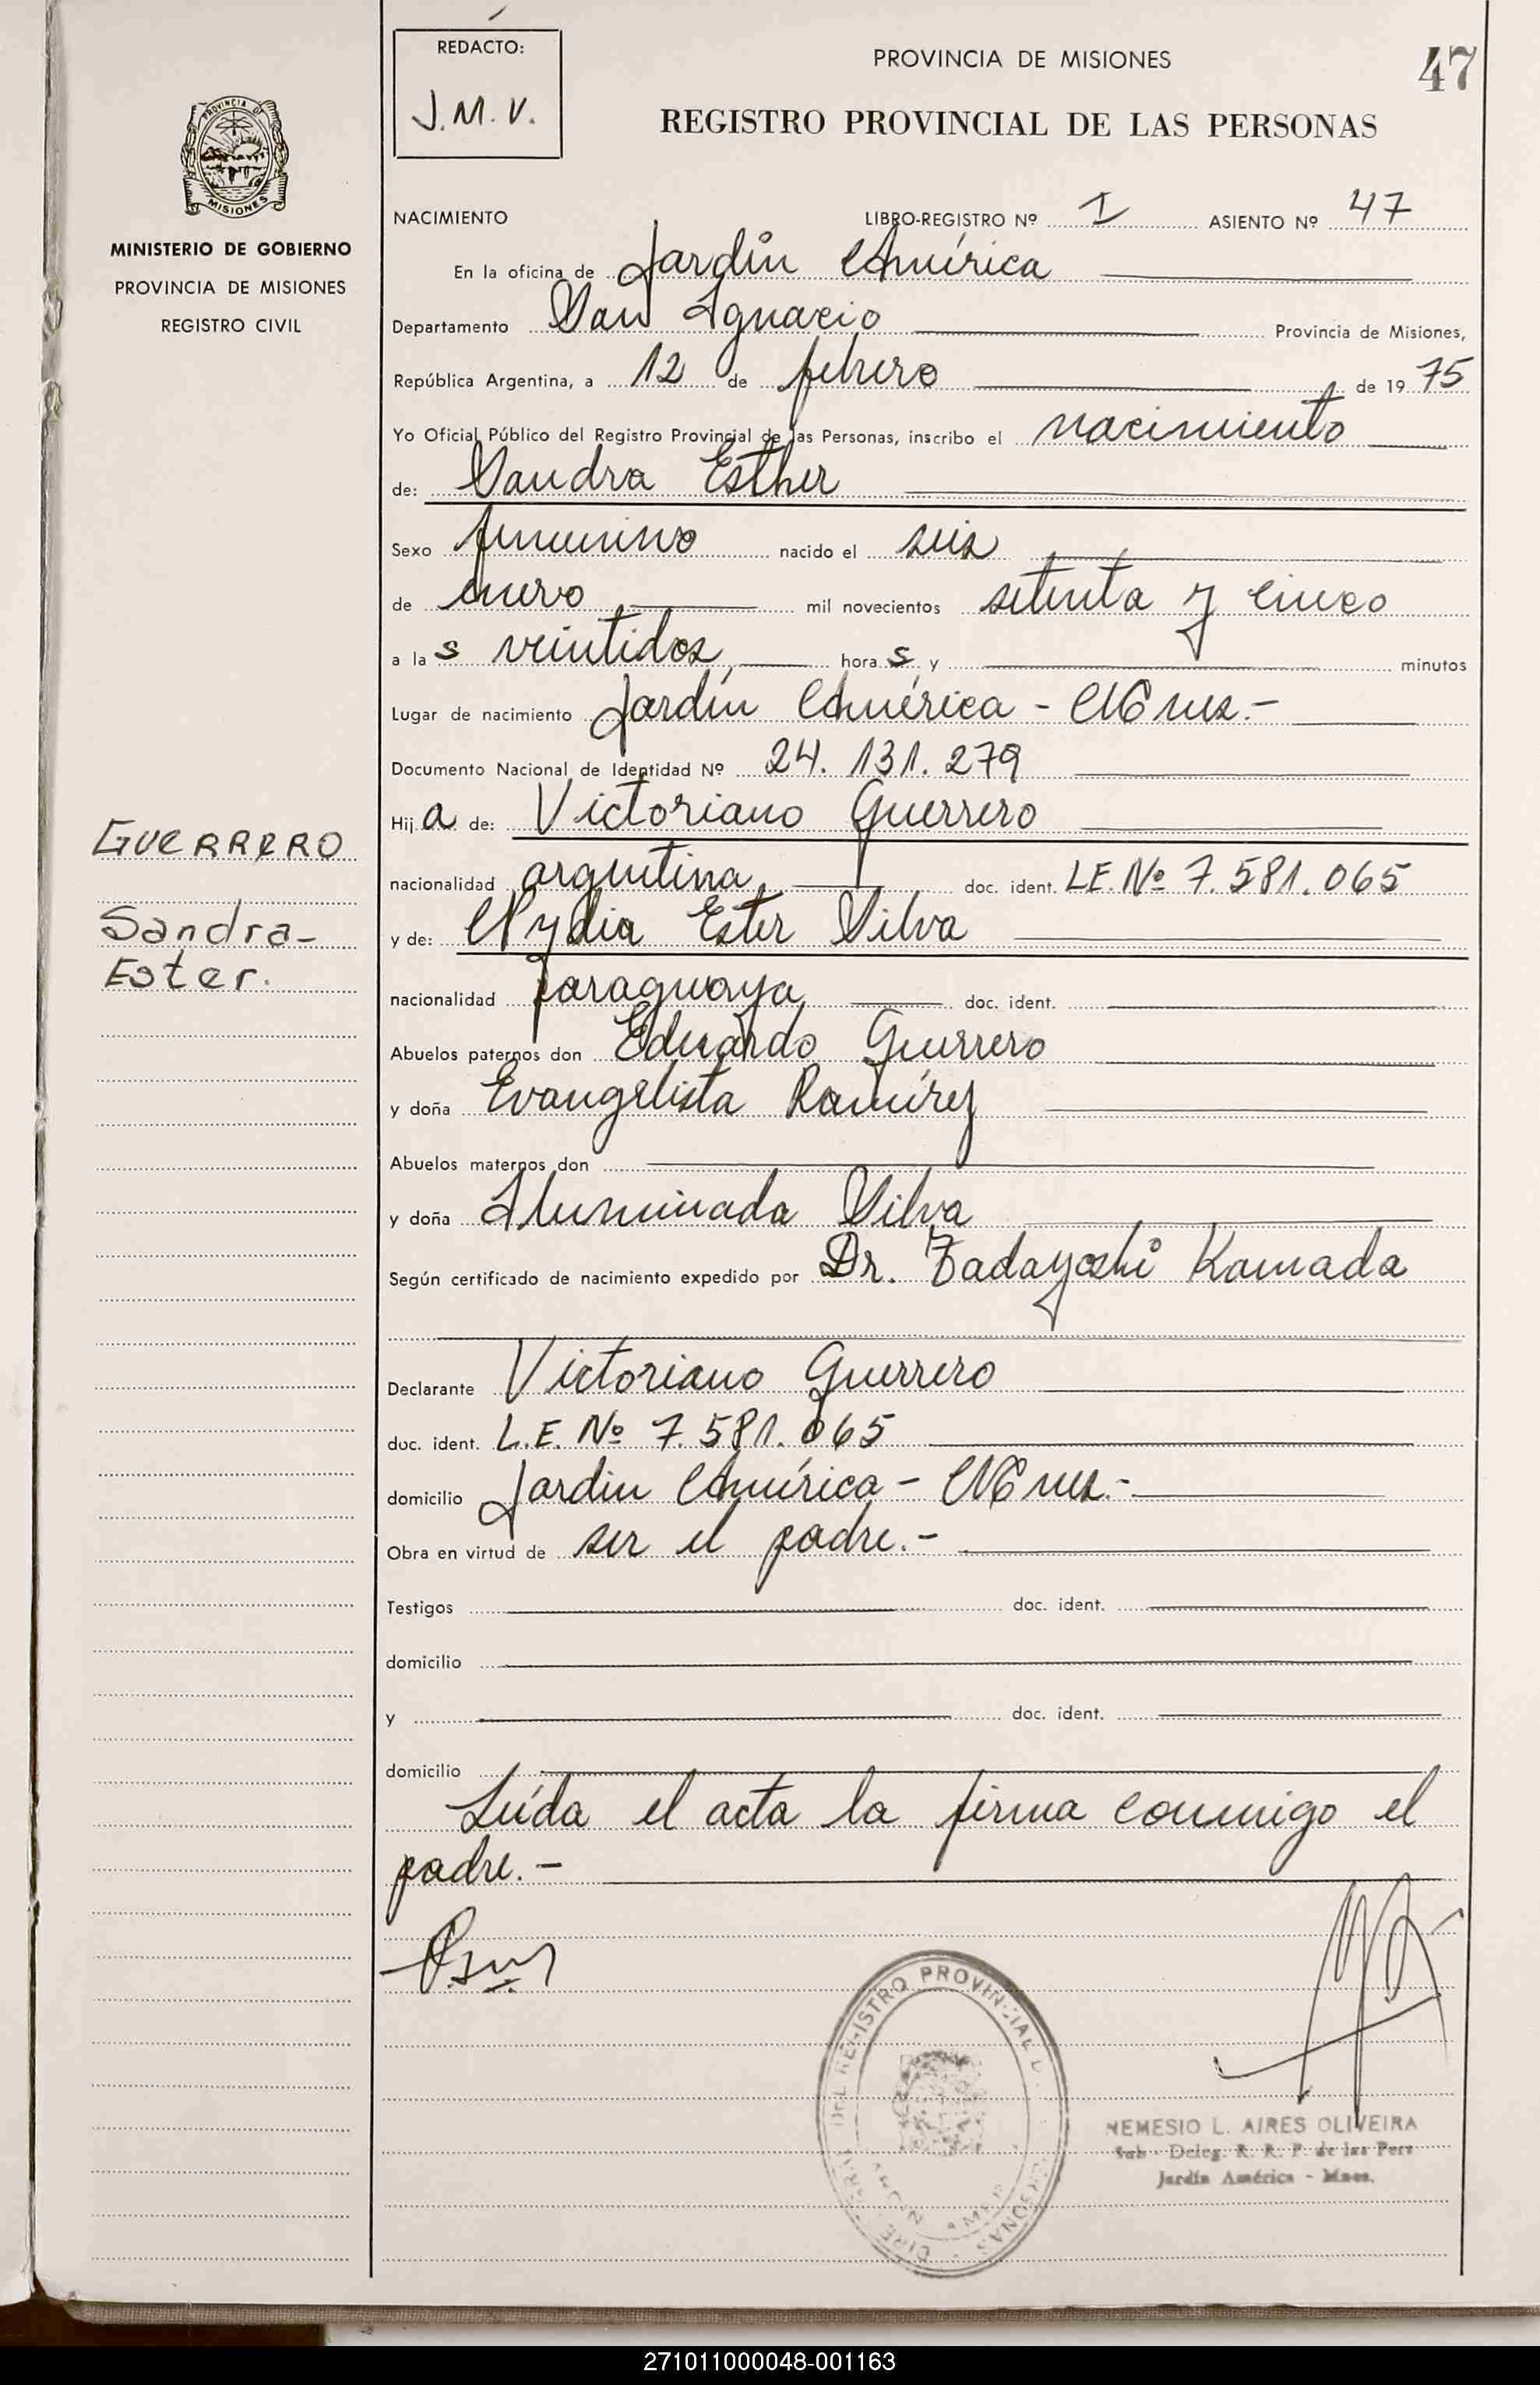 REDACTO:
J.M.V.
PROVINCIA DE MISIONES
47
REGISTRO PROVINCIAL DE LAS PERSONAS
PROVINCIA DE
MISIONES
MINISTERIO DE GOBIERNO
PROVINCIA DE MISIONES
REGISTRO CIVIL
NACIMIENTO LIBRO-REGISTRO Nº I ASIENTO Nº 47
En la oficina de Jardín América
Departamento San Ignacio Provincia de Misiones,
República Argentina, a 12 de febrero de 1975
Yo Oficial Público del Registro Provincial de las Personas, inscribo el nacimiento
de: Sandra Esther
Sexo femenino nacido el seis
de enero mil novecientos setenta y cinco
a las veintidos, horas y minutos
Lugar de nacimiento Jardín América - Mnes.-
Documento Nacional de Identidad Nº 24.131.279
Hija de: Victoriano Guerrero
GUERRERO
nacionalidad argentina, doc. ident. L.E. Nº 7.581.065
Sandra-
y de: Nydia Ester Silva
Ester.
nacionalidad paraguaya, doc. ident.
Abuelos paternos don Eduardo Guerrero
y doña Evangelista Ramírez
Abuelos maternos don
y doña Iluminada Silva
Según certificado de nacimiento expedido por Dr. Tadayoshi Kamada
Declarante Victoriano Guerrero
doc. ident. L.E. Nº 7.581.065
domicilio Jardin América - Mnes.-
Obra en virtud de ser el padre.-
Testigos doc. ident.
domicilio
y doc. ident.
domicilio
Leída el acta la firma conmigo el
padre.-
REGISTRO PROVINCIAL
NEMESIO L. AIRES OLIVEIRA
Sub - Deleg. R. R. P. de las Pers
Jardín América - Mnes.
271011000048-001163